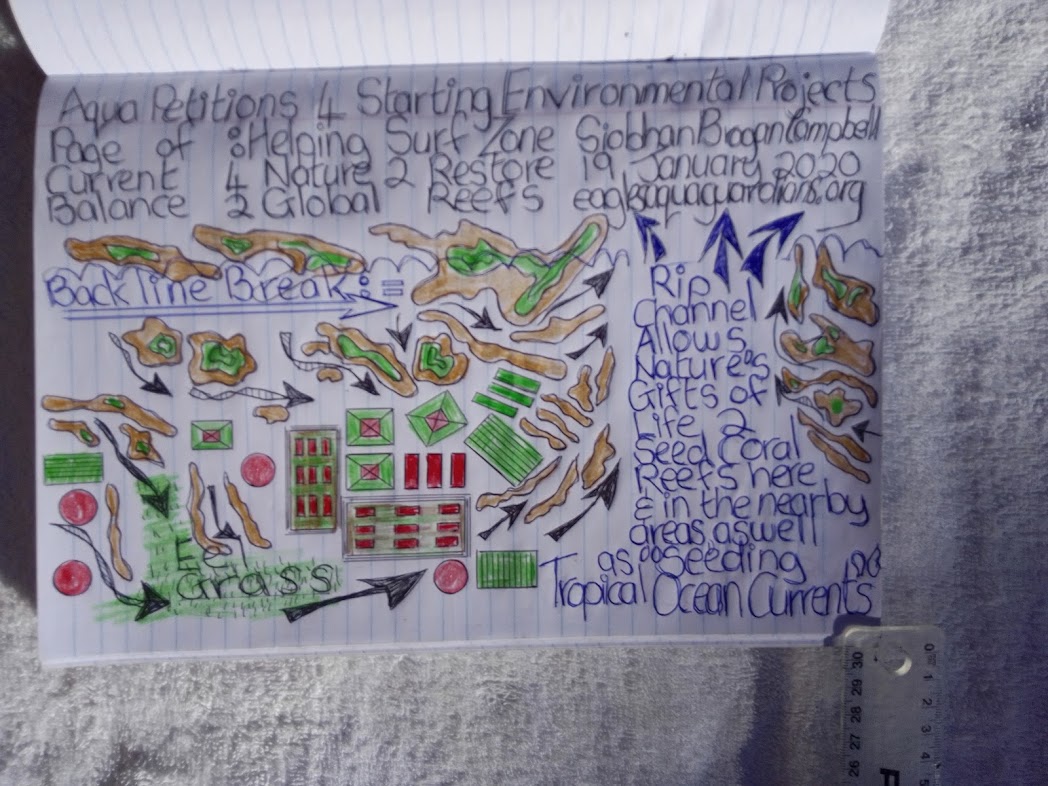 Aqua Petitions 4 Starting Environmental Projects
Page of :Helping Surf Zone Siobhan Brogan Campbell
Current 4 Nature 2 Restore 19 January 2020
Balance 2 Global Reefs
Back line Break:=
Rip
Channel
Allows
Nature's
Gifts of
Life 2
Seed Coral
Reefs here
& in the nearby
areas as well
as Seeding
Tropical Ocean Currents
Eel
Grass
0 1 2 3 4 5
30 29 28 27 26